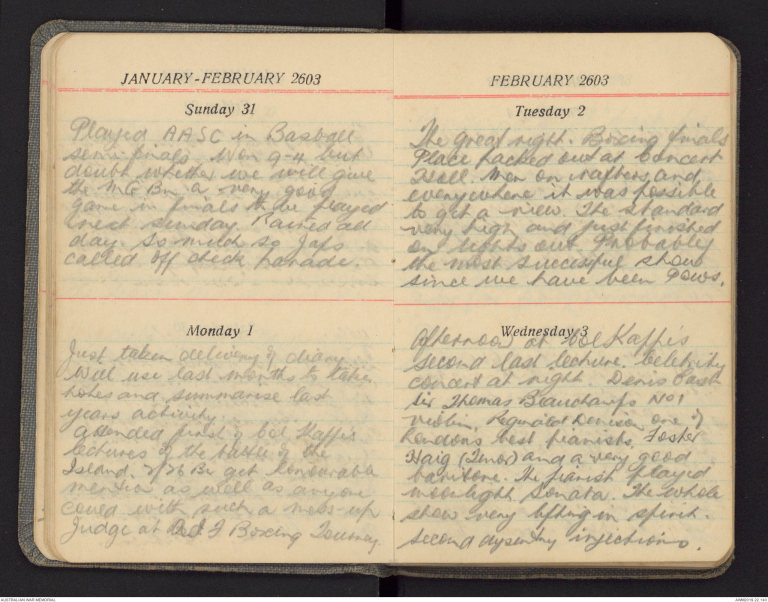 JANUARY-FEBRUARY 2603
Sunday 31
Played AASC in Basball
semi-finals. Won 9-4 but
doubt whether we will give
the MG Bn a very good
game in finals to be played
next Sunday. Rained all
day. So much so Japs
called off check parade.
Monday 1
Just taken delivery of diary.
Will use last months to take
notes and summarise last
years activity.
Attended first of Col Kappe's
lectures of the battle of the
Island. 2/26 Bn get honourable
mention as well as anyone
could with such a mess-up
Judge at Boxing Tourney.
FEBRUARY 2603
Tuesday 2
The great night. Boxing finals
Place packed out at Concert
Hall. Men on rafters and
everywhere it was possible
to get a view. The standard
very high and just finished
on lights out. Probably
the most successful show
since we have been P.O.W's.
Wednesday 3
Afternoon at Col Kappe's
second last lecture. Celebrity
concert at night. Denis East
Sir Thomas Beauchamps No 1
violin, Reginald Denison one of
Londons best pianists, Foster
Haig (Tenor) and a very good
baritone. The pianist played
moonlight Sonata. The whole
show very lifting in spirit.
Second dysentry injections.
AUSTRALIAN WAR MEMORIAL